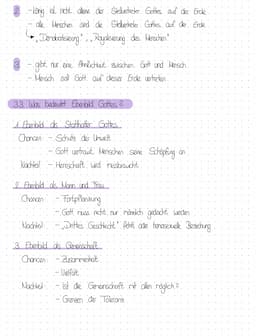 2 - König ist nicht allein der Stellvertreter Gottes auf der Erde
- alle Menschen sind die Stellvertreter Gottes auf der Erde
↳ „Demokratisierung", „Royalisierung des Menschen"
3 - gibt nur eine Ähnlichkeit zwischen Gott und Mensch
- Mensch soll Gott auf dieser Erde vertreten
3.3. Was bedeutet Ebenbild Gottes?
1. Ebenbild als Statthalter Gottes
Chancen: - Schutz der Umwelt
- Gott vertraut Menschen seine Schöpfung an
Nachteil: - Herrschaft wird missbraucht
2. Ebenbild als Mann und Frau
Chancen: - Fortpflanzung
- Gott muss nicht nur männlich gedacht werden
Nachteil: - „Drittes Geschlecht" fehlt oder homosexuelle Beziehung
3. Ebenbild als Gemeinschaft
Chancen: - Zusammenhalt
- Vielfalt
Nachteil: - Ist die Gemeinschaft mit allen möglich?
- Grenzen der Toleranz